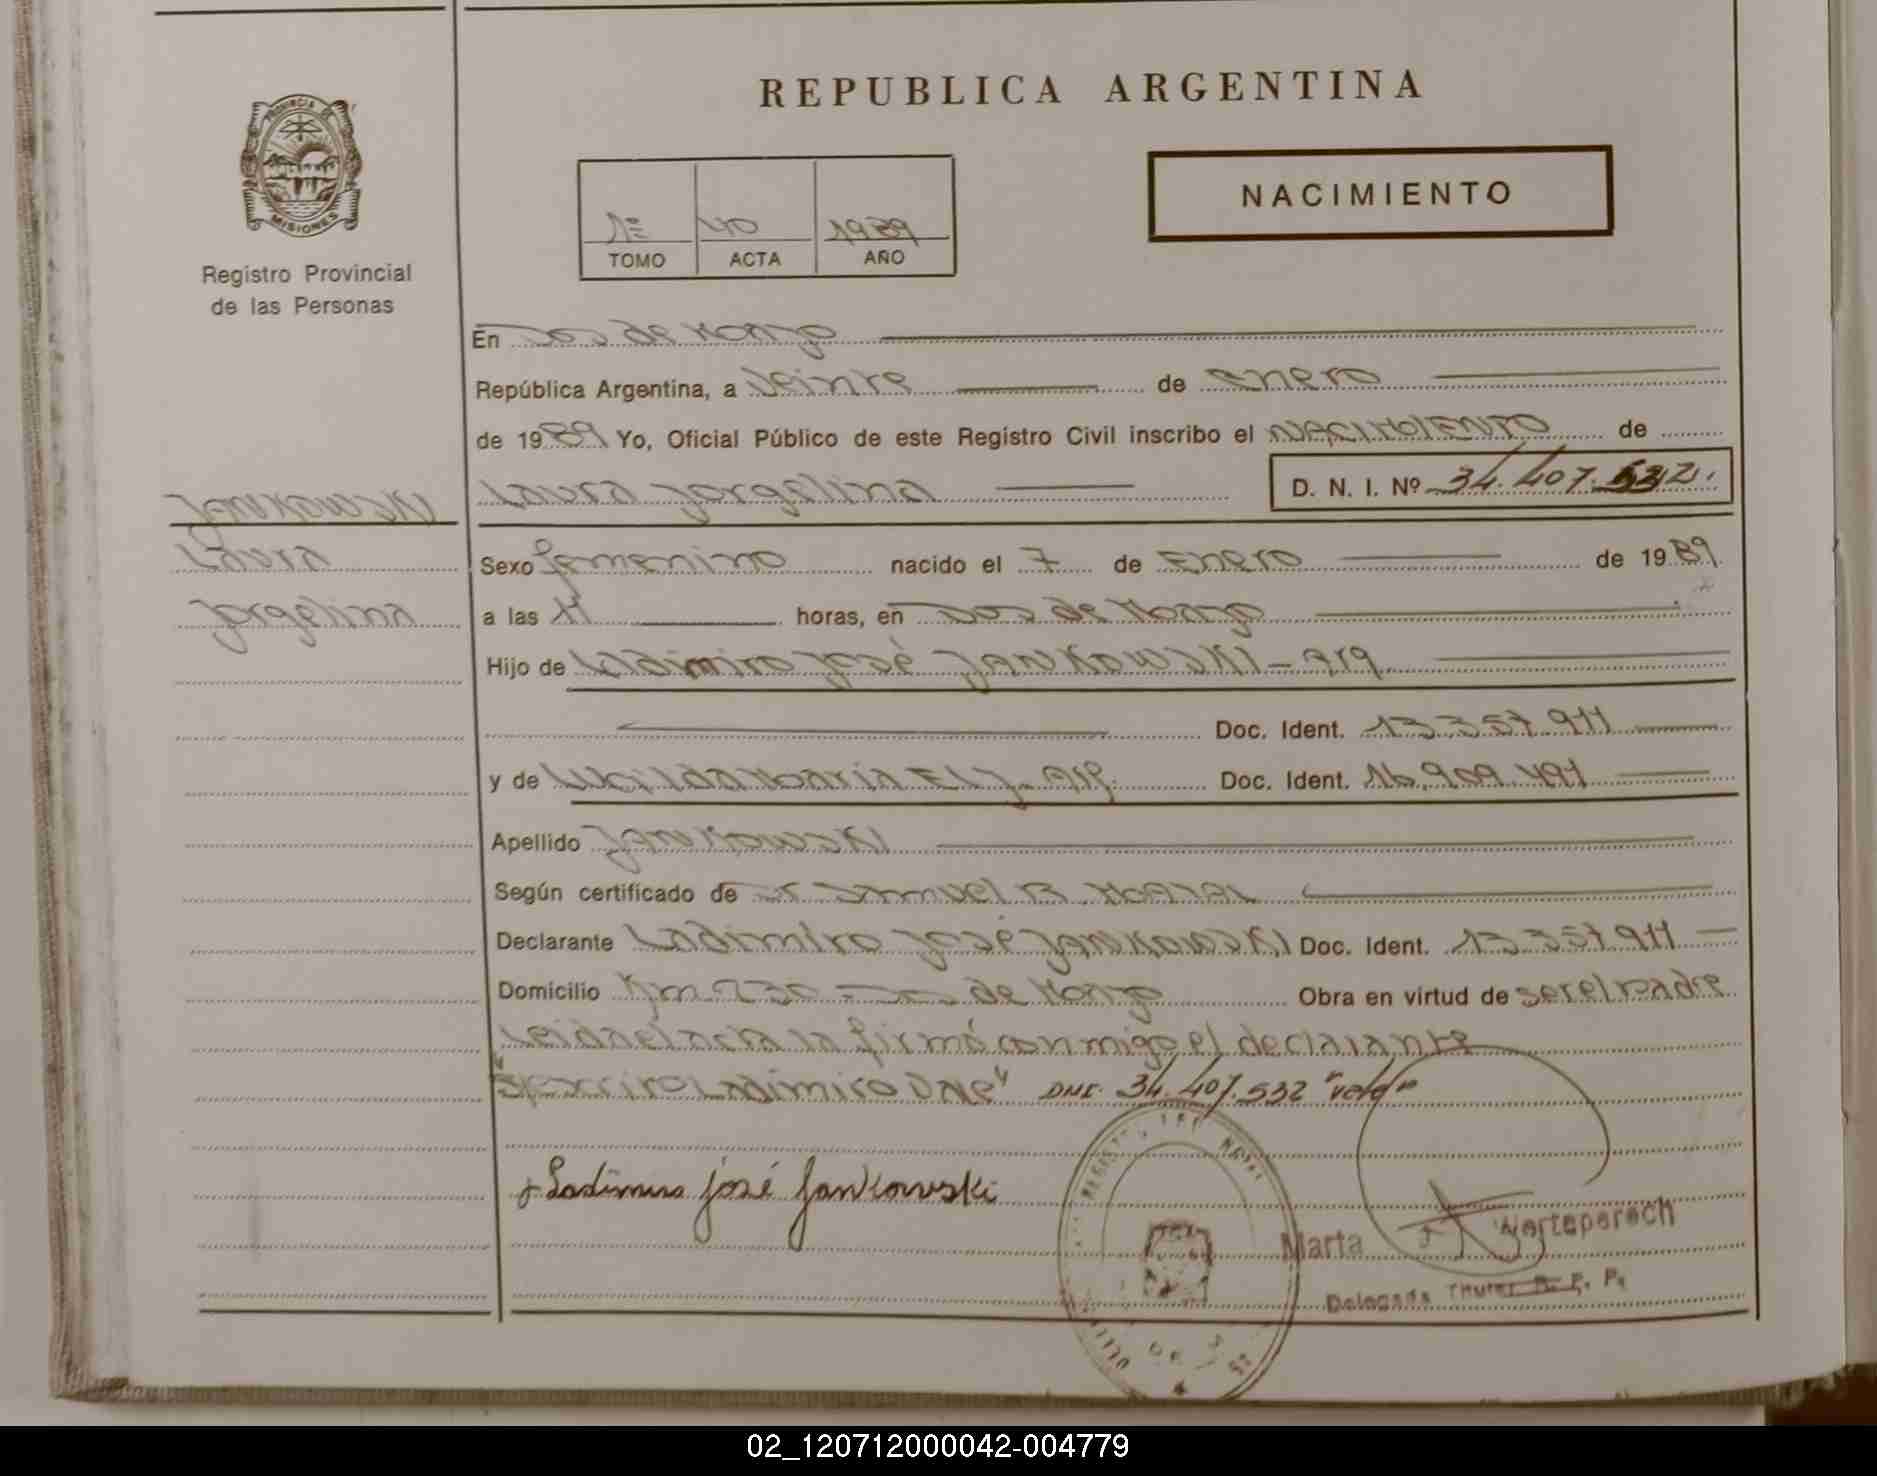 REPUBLICA ARGENTINA
PROVINCIA DE
MISIONES
Registro Provincial
de las Personas
NACIMIENTO
1º 40 1989
TOMO ACTA AÑO
En Dos de Mayo
República Argentina, a Veinte de enero
de 1989 Yo, Oficial Público de este Registro Civil inscribo el NACIMIENTO de
Laura Jorgelina D. N. I. Nº 34.407.532.
JANKOWSKI
Laura
Jorgelina
Sexo femenino nacido el 7 de Enero de 1989
a las 11 horas, en Dos de Mayo
Hijo de Ladimiro José JANKOWSKI - Arg
Doc. Ident. 13.357.911
y de Lucilda Maria ELY - Arg. Doc. Ident. 16.909.491
Apellido JANKOWSKI
Según certificado de Dr Samuel B.
Declarante Ladimiro José JANKOWSKI Doc. Ident. 13.357.911
Domicilio Km 230 - Dos de Mayo Obra en virtud de ser el padre
Leida el acta la firmá conmigo el declarante
Ladimiro Vale" DNI. 34.407.532 "vale"
Ladimiro José Jankowski
Marta
Delegada
02_120712000042-004779